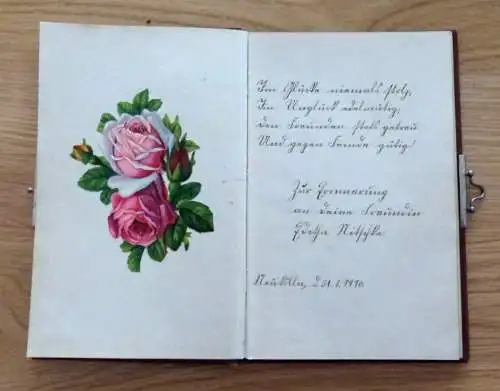 Im Glücke niemals stolz,
Im Unglück edelmütig,
den Freunden stets getreu
Und gegen Feinde gütig!
Zur Erinnerung
an deine Freundin
Nitschke
Neukölln, d 31. 1.